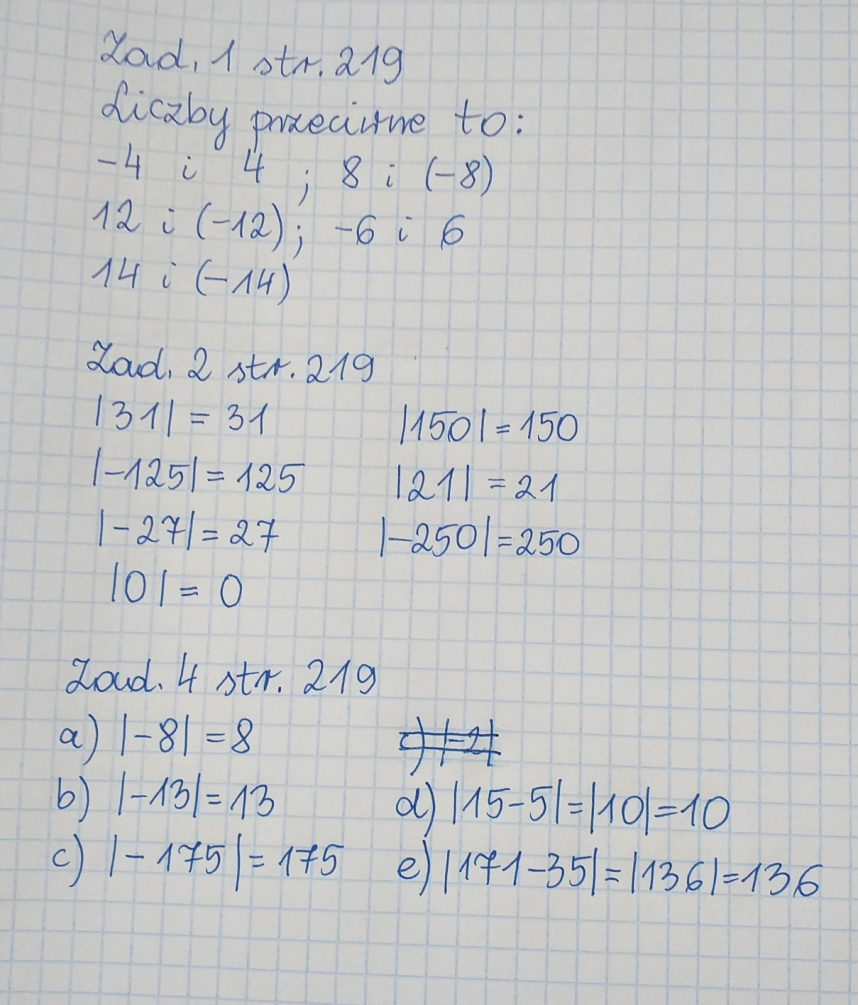 Zad. 1 str. 219
Liczby przeciwne to:
-4 i 4 ; 8 i (-8)
12 i (-12); -6 i 6
14 i (-14)
Zad. 2 str. 219
|31| = 31 |150| = 150
|-125| = 125 |21| = 21
|-27| = 27 |-250| = 250
|0| = 0
Zad. 4 str. 219
a) |-8| = 8 c) |-2|
b) |-13| = 13 d) |15-5| = |10| = 10
c) |-175| = 175 e) |171-35| = |136| = 136